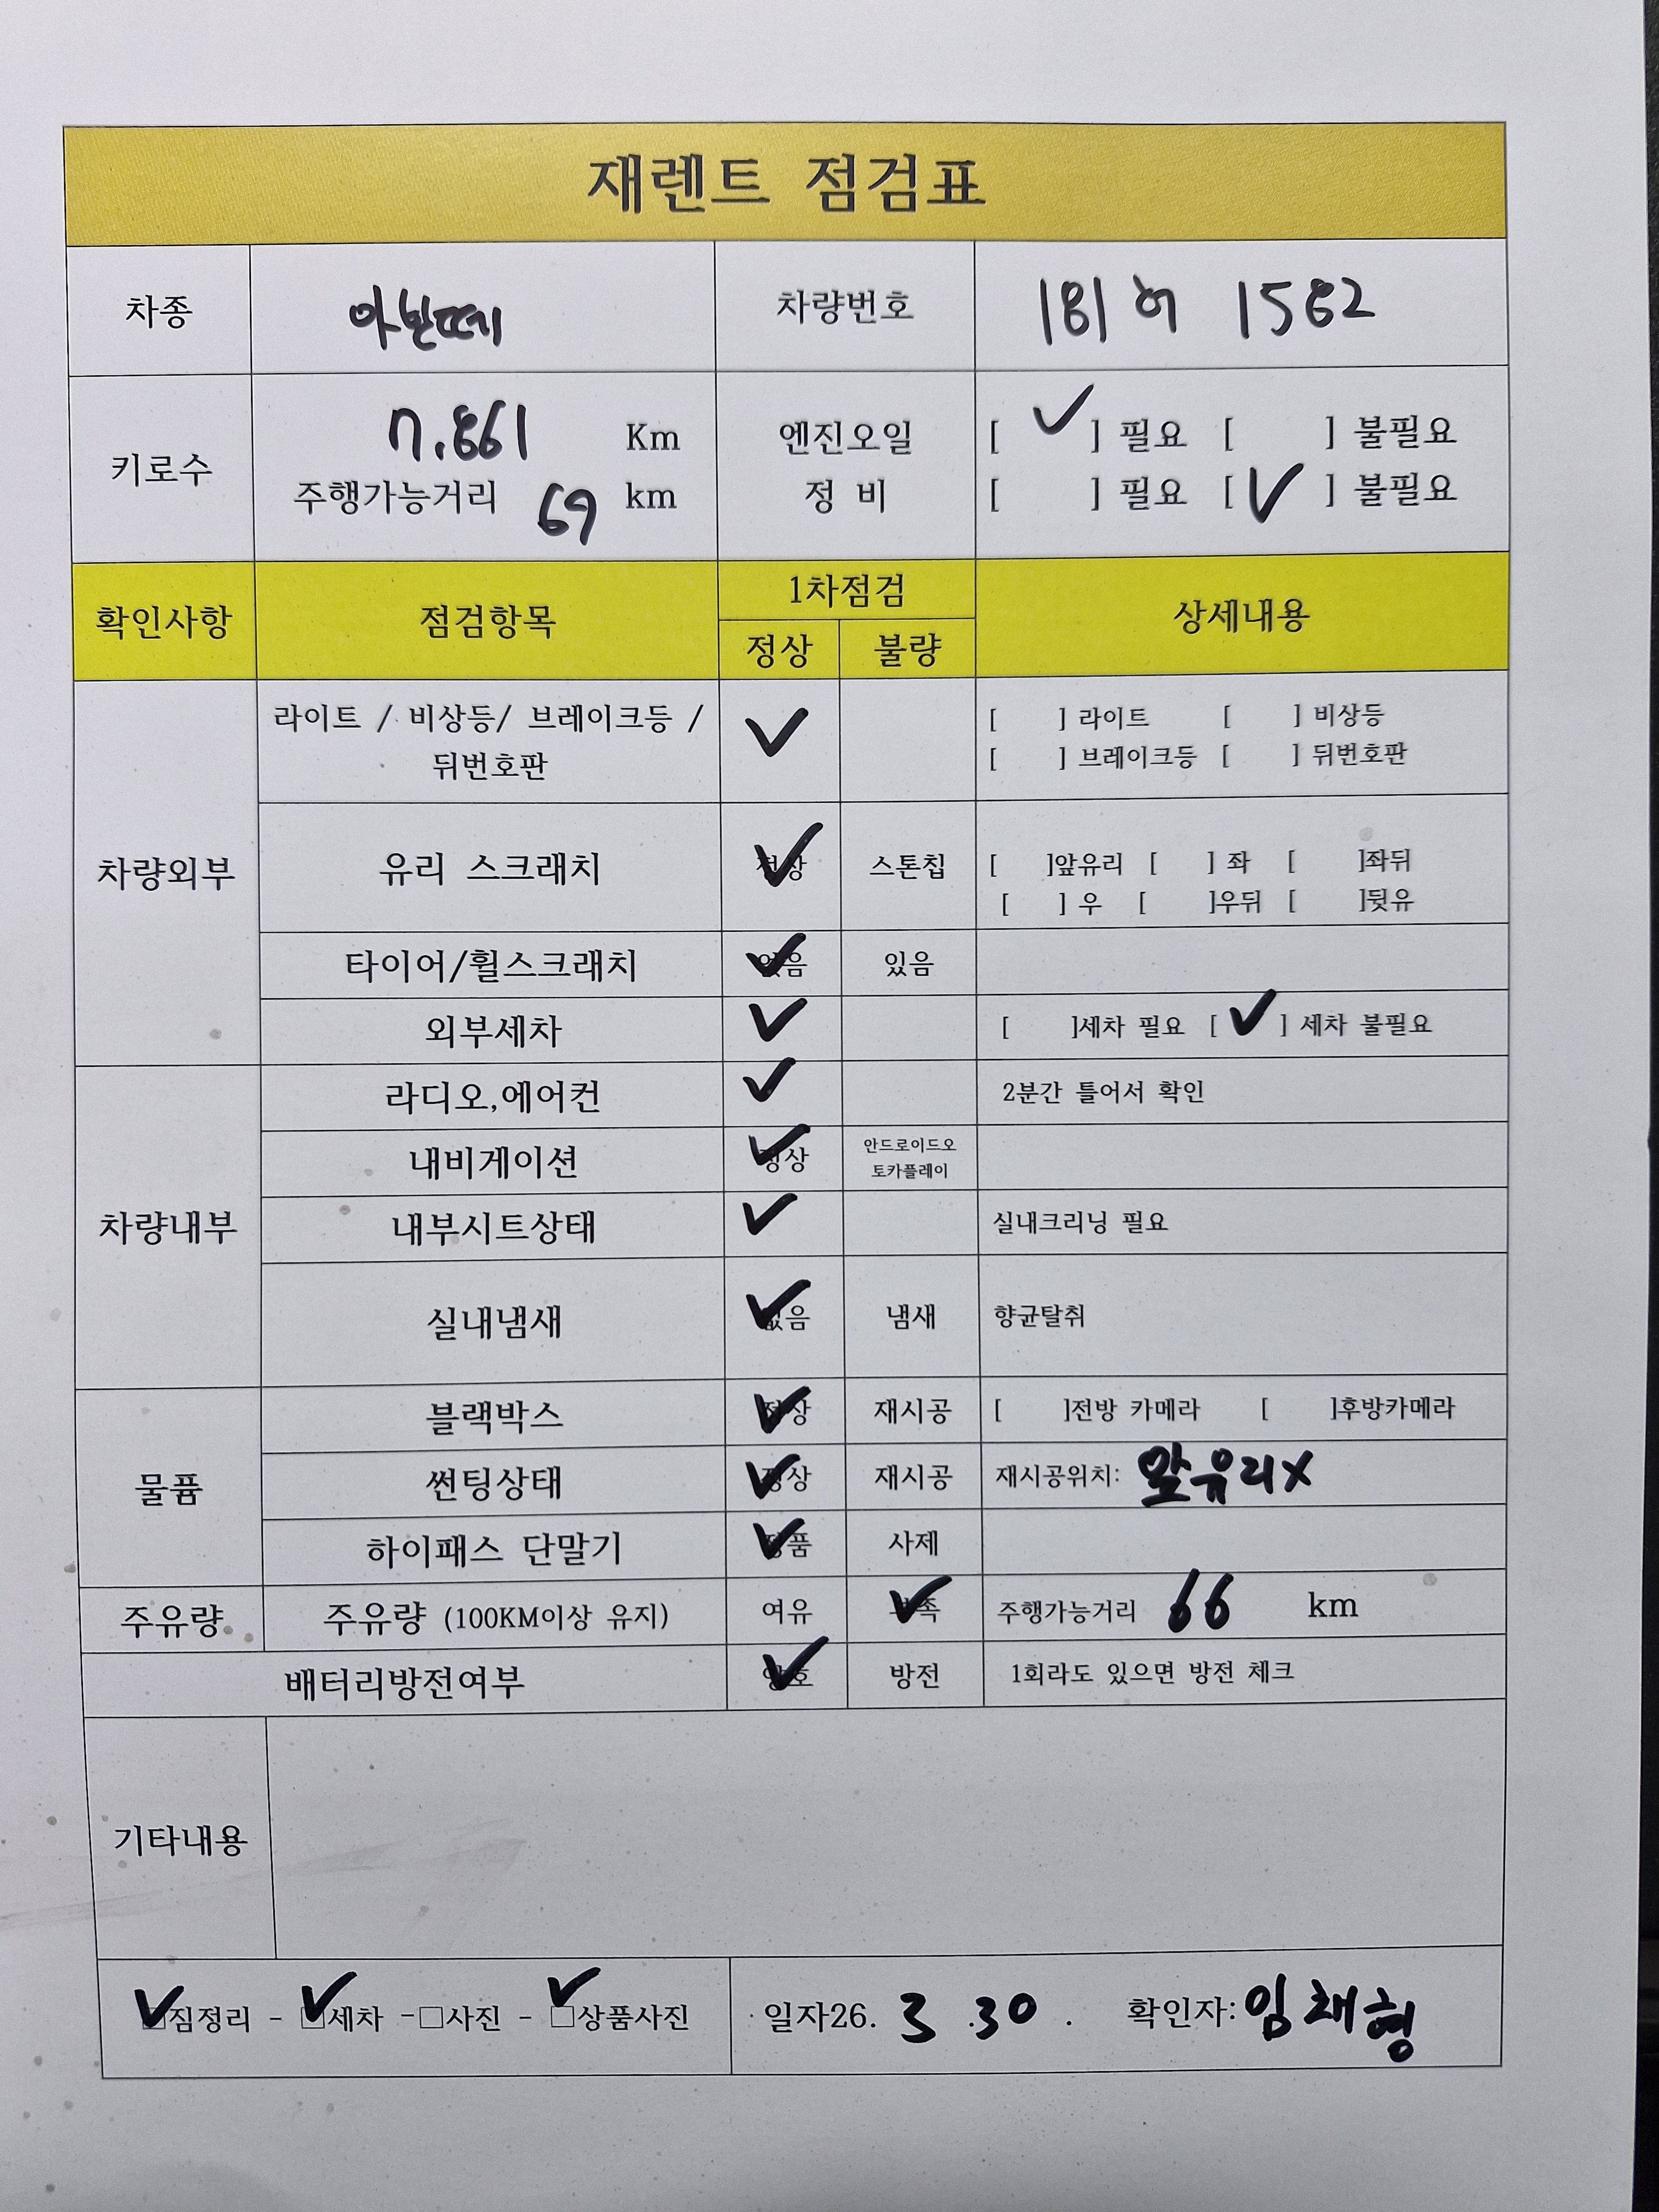 재렌트 점검표
차종 아반떼 차량번호 181 허 1582
키로수 7.861 Km 엔진오일 [ ✓ ] 필요 [ ] 불필요
주행가능거리 69 km 정 비 [ ] 필요 [ ✓ ] 불필요
확인사항 점검항목 1차점검 상세내용
정상 불량
차량외부
라이트 / 비상등/ 브레이크등 / ✓ [ ] 라이트 [ ] 비상등
뒤번호판 [ ] 브레이크등 [ ] 뒤번호판
유리 스크래치 정상 ✓ 스톤칩 [ ]앞유리 [ ] 좌 [ ]좌뒤
[ ] 우 [ ]우뒤 [ ]뒷유
타이어/휠스크래치 없음 ✓ 있음
외부세차 ✓ [ ]세차 필요 [ ✓ ] 세차 불필요
차량내부
라디오,에어컨 ✓ 2분간 틀어서 확인
내비게이션 정상 ✓ 안드로이드오
토카플레이
내부시트상태 ✓ 실내크리닝 필요
실내냄새 없음 ✓ 냄새 향균탈취
물품
블랙박스 정상 ✓ 재시공 [ ]전방 카메라 [ ]후방카메라
썬팅상태 정상 ✓ 재시공 재시공위치: 앞유리X
하이패스 단말기 정품 ✓ 사제
주유량 주유량 (100KM이상 유지) 여유 부족 ✓ 주행가능거리 66 km
배터리방전여부 양호 ✓ 방전 1회라도 있으면 방전 체크
기타내용
☑짐정리 - ☑세차 -□사진 - ☑상품사진 일자26. 3 .30 . 확인자: 임채형